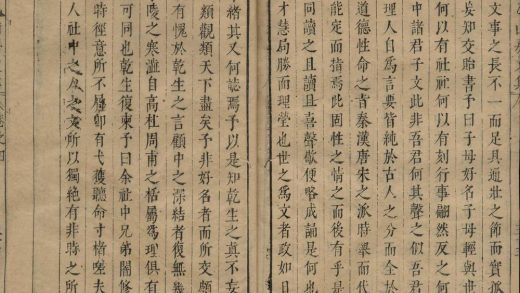 文事之長不一而足具遒壯之節而實
矣知交貽書予曰子母好名子母輕與世
何以有社社何以有刻行事翩然反之何
中諸君子文此非吾君何其聲之似吾君
理人自爲言要皆純於古人之分而全於
道德性命之旨秦漢唐宋之派時舉而代
能定而指焉此固性之情之而後有乎是
同讀之且讀且喜聲歡便略成誦是何也
才慧局勝而理瑩也世之爲文者政如日
楮其又何誌焉予以是知乾生之真不妄
類觀類天下盡矣予非好名者而所交願
有愧於乾生之言顧中之深結者復無幾
陵之寒澁自高杜周甫之恬爲理俱有
可同也乾生復柬予曰余社中兄弟閒修
時徑意所不屬卽有弋獲聽命寸楮嗟夫
人社中之人之文所以獨絕有非時之所